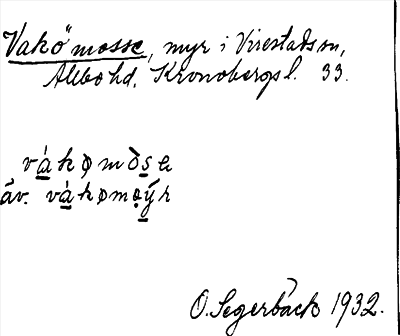 Vakö mosse, myr i Virestads sn,
Allbo hd. Kronobergs l. 33.
våkømòse
äv. våkømøýr
O. Segerbäck 1932.